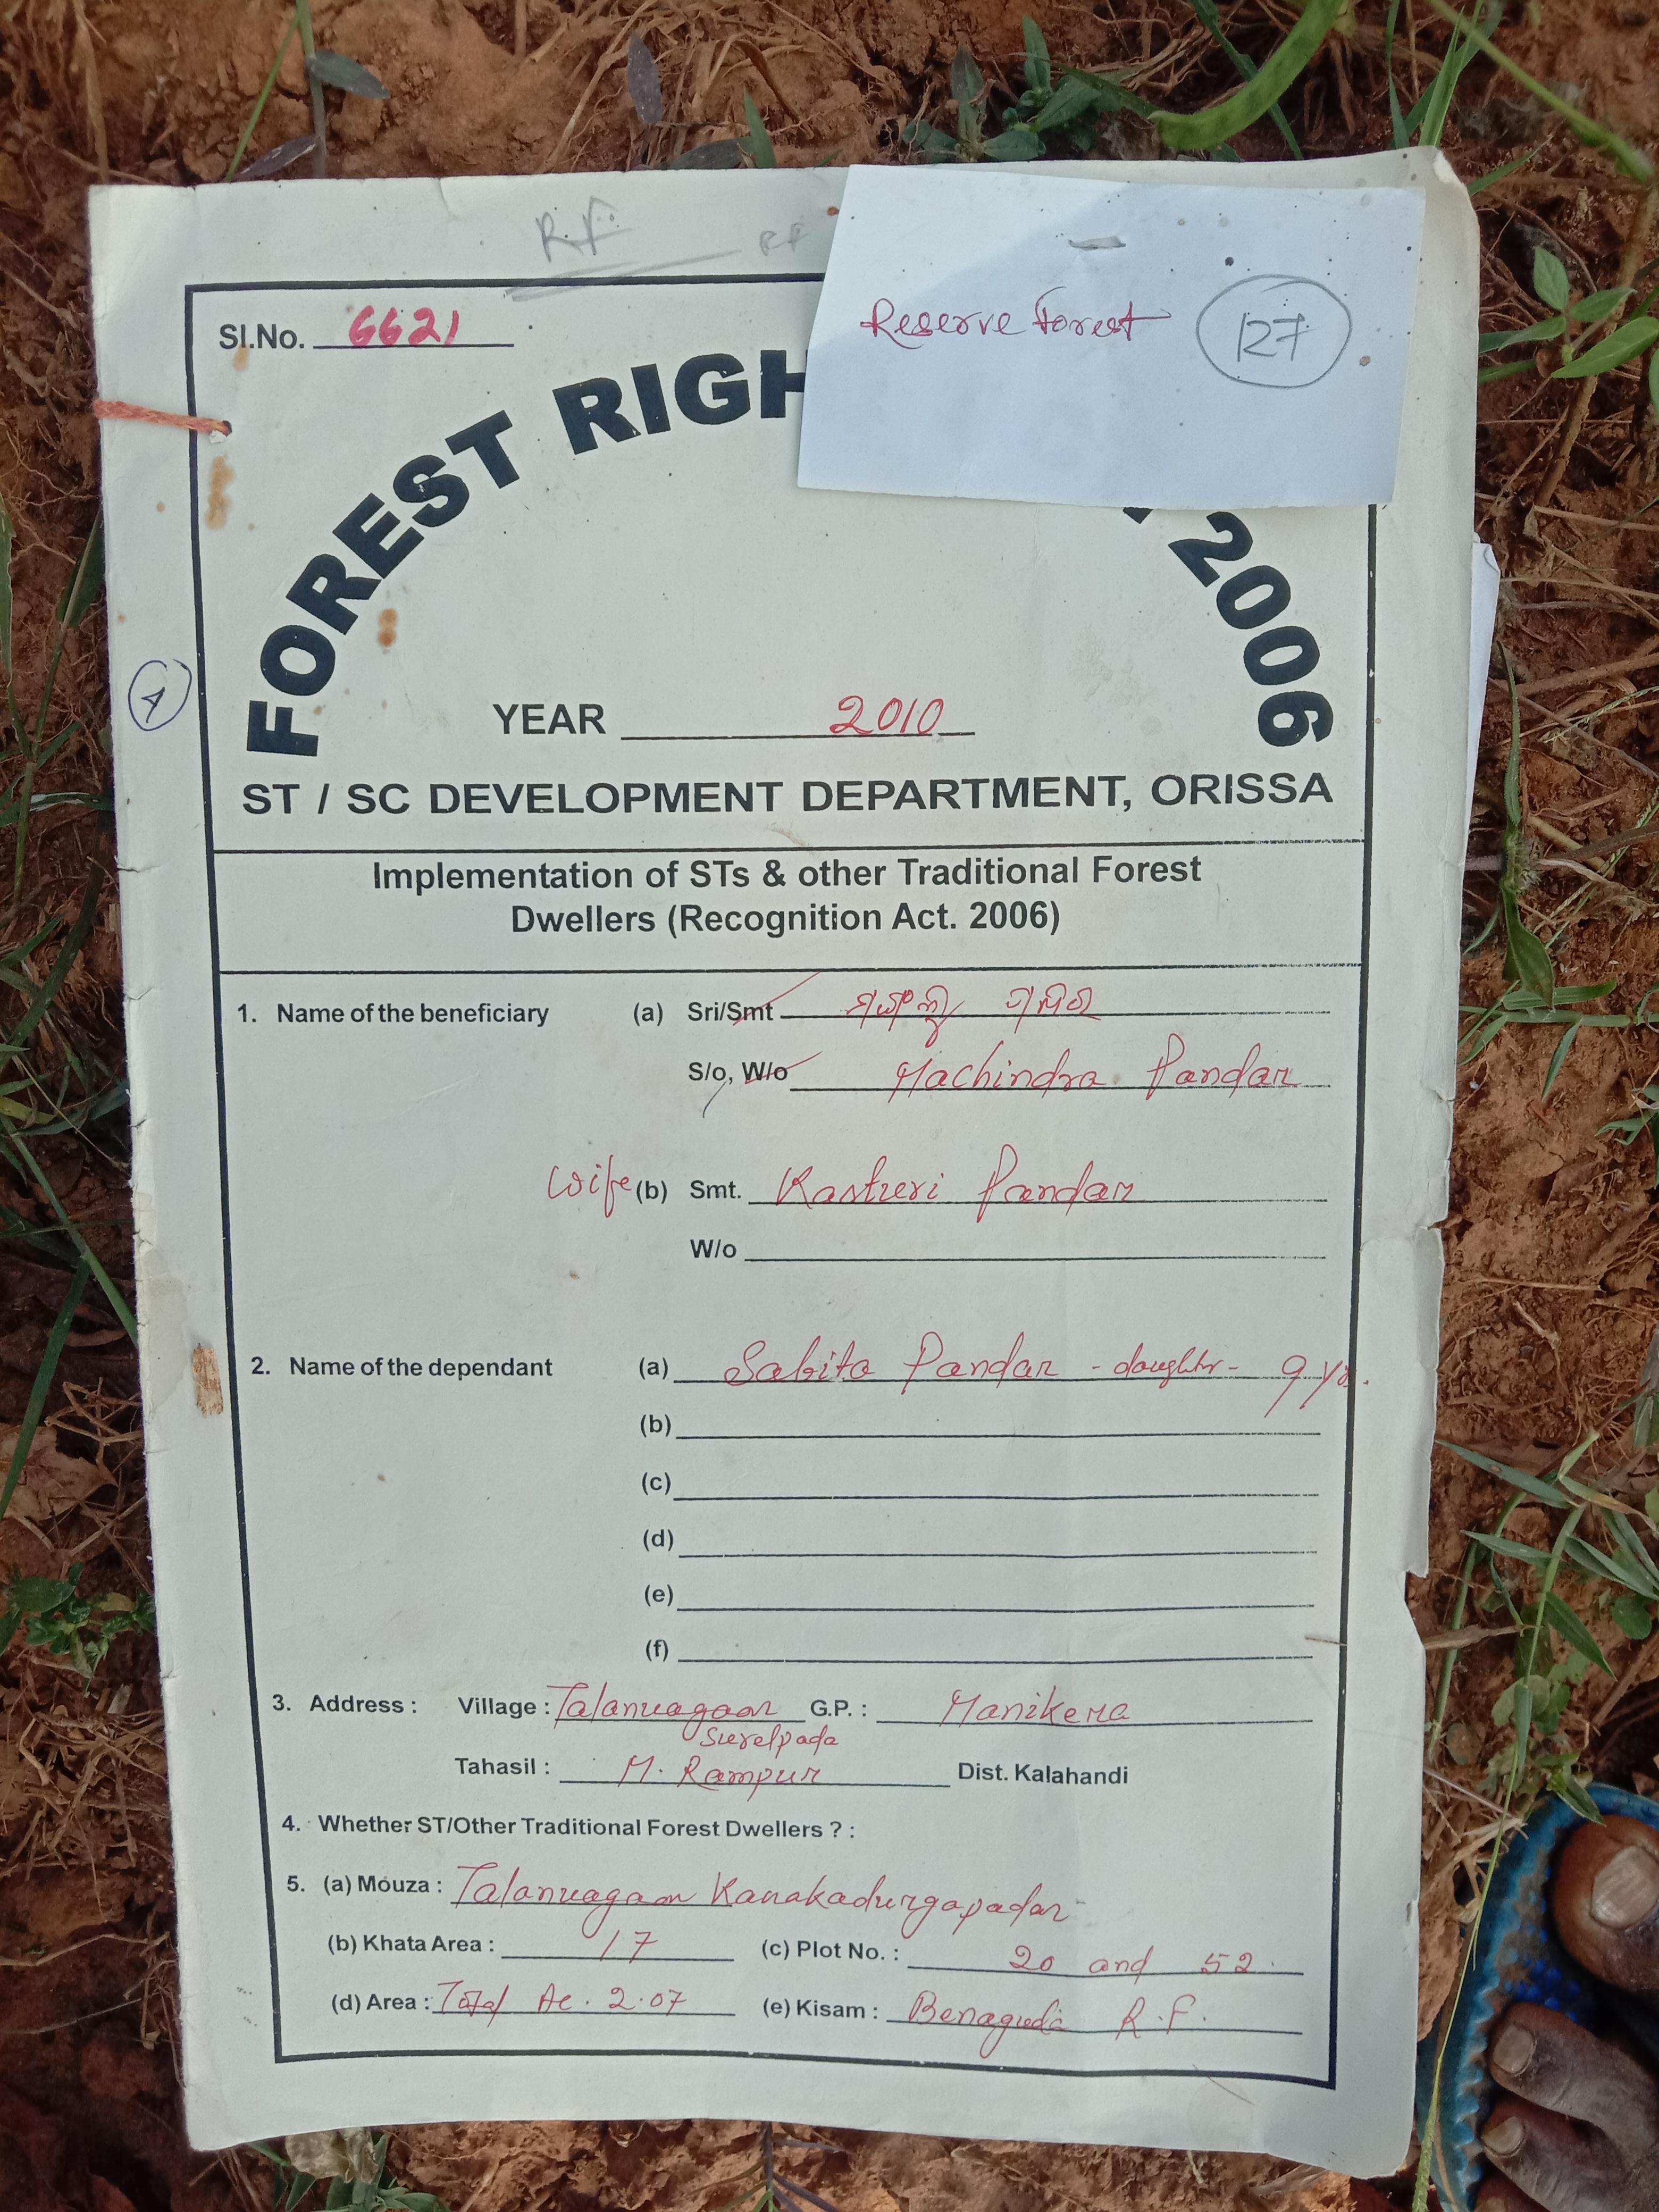 RF RF
Reserve Forest 127
Sl.No. 6621
FOREST RIGH 2006
A
YEAR 2010
ST / SC DEVELOPMENT DEPARTMENT, ORISSA
Implementation of STs & other Traditional Forest
Dwellers (Recognition Act. 2006)
1. Name of the beneficiary (a) Sri/Smt
S/o, W/o Machindra Pandar
wife (b) Smt. Kasturi Pandar
W/o
2. Name of the dependant (a) Sabita Pandar - daughtr - 9 yrs.
(b)
(c)
(d)
(e)
(f)
3. Address : Village : Talanuagaon G.P. : Manikera
Surelpada
Tahasil : M. Rampur Dist. Kalahandi
4. Whether ST/Other Traditional Forest Dwellers ? :
5. (a) Mouza : Talanuagaon Kanakadurgapadar
(b) Khata Area : 17 (c) Plot No. : 20 and 52.
(d) Area : Total Ac. 2.07 (e) Kisam : Benaguda R.F.